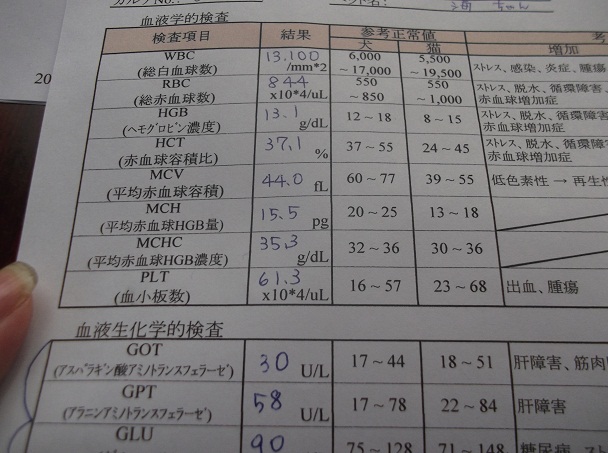 カルテNo.:
ット名: 海 ちゃん
20
血液学的検査
検査項目 結果 参考正常値
犬 猫 増加
WBC 13.100 6,000 5,500
(総白血球数) /mm*2 ~17,000 ~19,500 ストレス、感染、炎症、腫瘍
RBC 844 550 550 ストレス、脱水、循環障害
(総赤血球数) x10*4/uL ~850 ~1,000 赤血球増加症
HGB 13.1 12~18 8~15 ストレス、脱水、循環障害
(ヘモグロビン濃度) g/dL 赤血球増加症
HCT 37.1 37~55 24~45 ストレス、脱水、循環障害
(赤血球容積比) % 赤血球増加症
MCV 44.0 60~77 39~55 低色素性 → 再生性
(平均赤血球容積) fL
MCH 15.5 20~25 13~18
(平均赤血球HGB量) pg
MCHC 35.3 32~36 30~36
(平均赤血球HGB濃度) g/dL
PLT 61.3 16~57 23~68 出血、腫瘍
(血小板数) x10*4/uL
血液生化学的検査
GOT 30 17~44 18~51 肝障害、筋肉
(アスパラギン酸アミノトランスフェラーゼ) U/L
GPT 58 17~78 22~84 肝障害
(アラニンアミノトランスフェラーゼ) U/L
GLU 90 75~128 71~148 糖尿病、スト